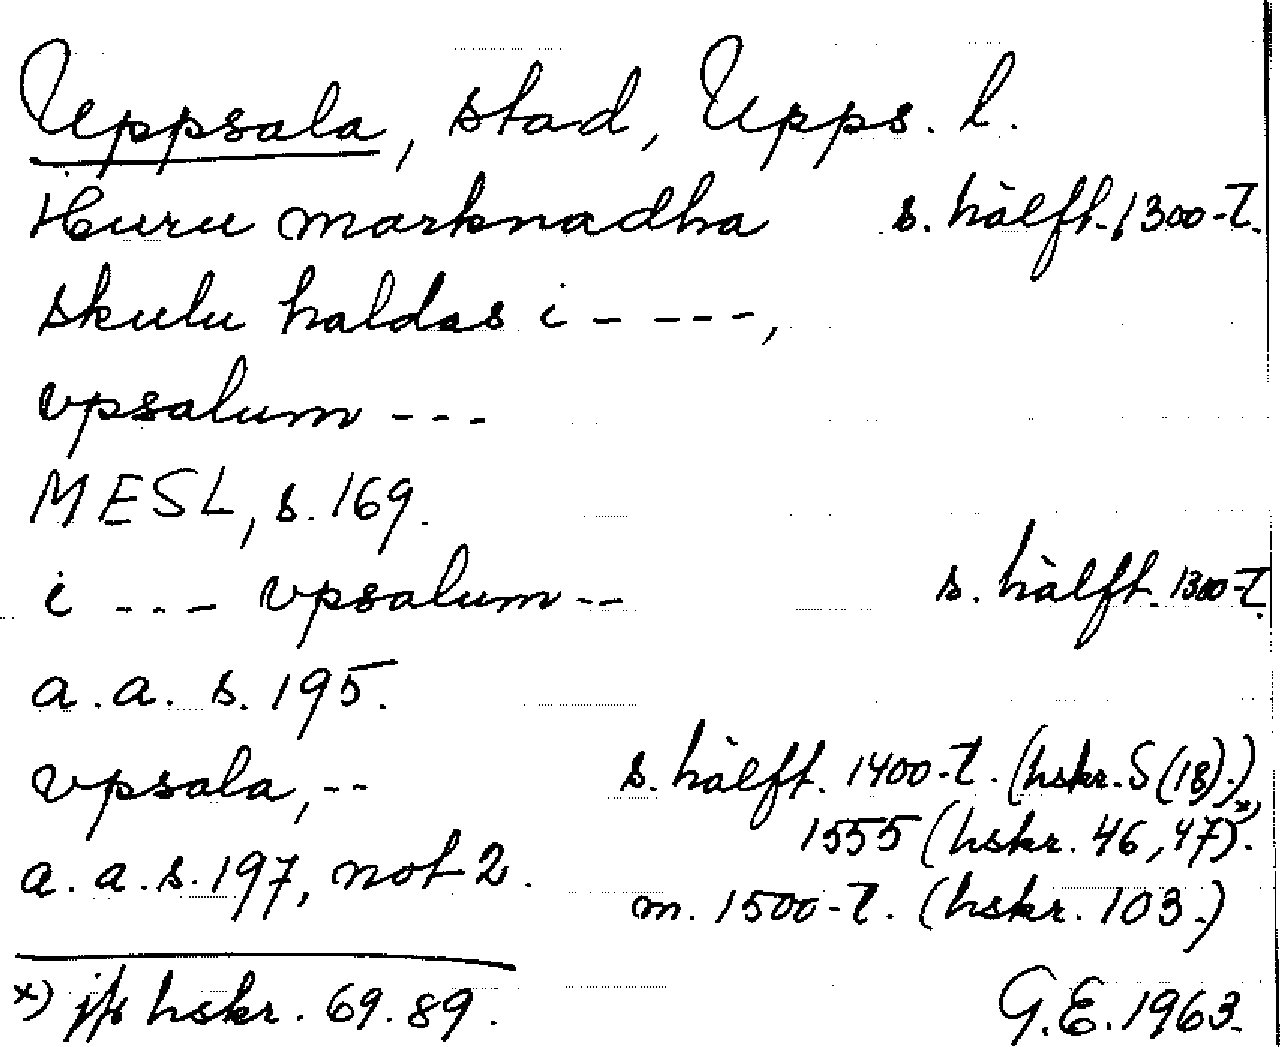 Uppsala, stad, Upps. l.
Huru marknadha s. hälft. 1300-t.
skulu haldas i - - - -,
vpsalum - - -
MESL, s. 169.
i - - - vpsalum - - s. hälft. 1300-t.
a. a. s. 195.
vpsala, - - s. hälft. 1400-t. (hskr. S (18).)
1555 (hskr. 46, 47)x).
a. a. s. 197, not 2. m. 1500-t. (hskr. 103.)
x) jfr hskr. 69. 89. G. E. 1963.